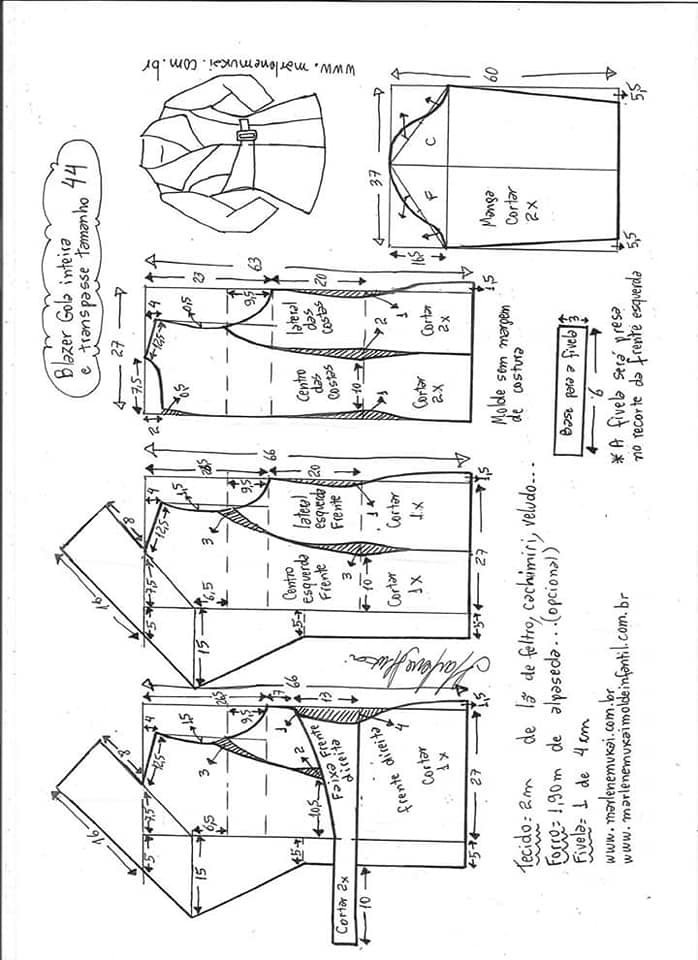 Blazer Gola inteira
e transpasse tamanho 44
www.marlenemukai.com.br
60
5,5
37
C
F
Manga
Cortar
2x
16,5
5,5
27
7,5
4
12,5
0,5
2
0,5
23
63
9,5
20
1,5
lateral
das
costas
Centro
das
costas
1
2
10
1
Cortar
2x
Cortar
2x
Molde sem margem
de costura
Base para a fivela
3
6
* A fivela será presa
no recorte da frente esquerda
16
8
4
12,5
7,5
5
1,5
3
6,5
15
66
9,5
20
1,5
lateral
esquerda
Frente
Centro
esquerda
Frente
1
3
10
5
Cortar
1x
Cortar
1x
27
5
16
8
4
12,5
7,5
5
1,5
3
6,5
15
66
26,5
9,5
7
13
1,5
1
2
10,5
4
5
Faixa Frente
direita
Frente direita
Cortar
1x
27
5
Cortar 2x
10
Tecido= 2m de lã de feltro, cachimiri, veludo...
Forro= 1,90m de alpaseda...(opcional)
Fivela= 1 de 4cm
www.marlenemukai.com.br
www.marlenemukaimoldeinfantil.com.br